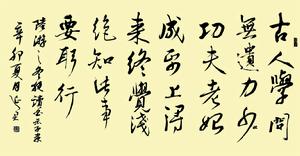 古人學問
無遺力少
功夫老始
成紙上得
來終覺淺
絕知此事
要躬行
陸游之冬夜讀書示子聿
辛卯夏月